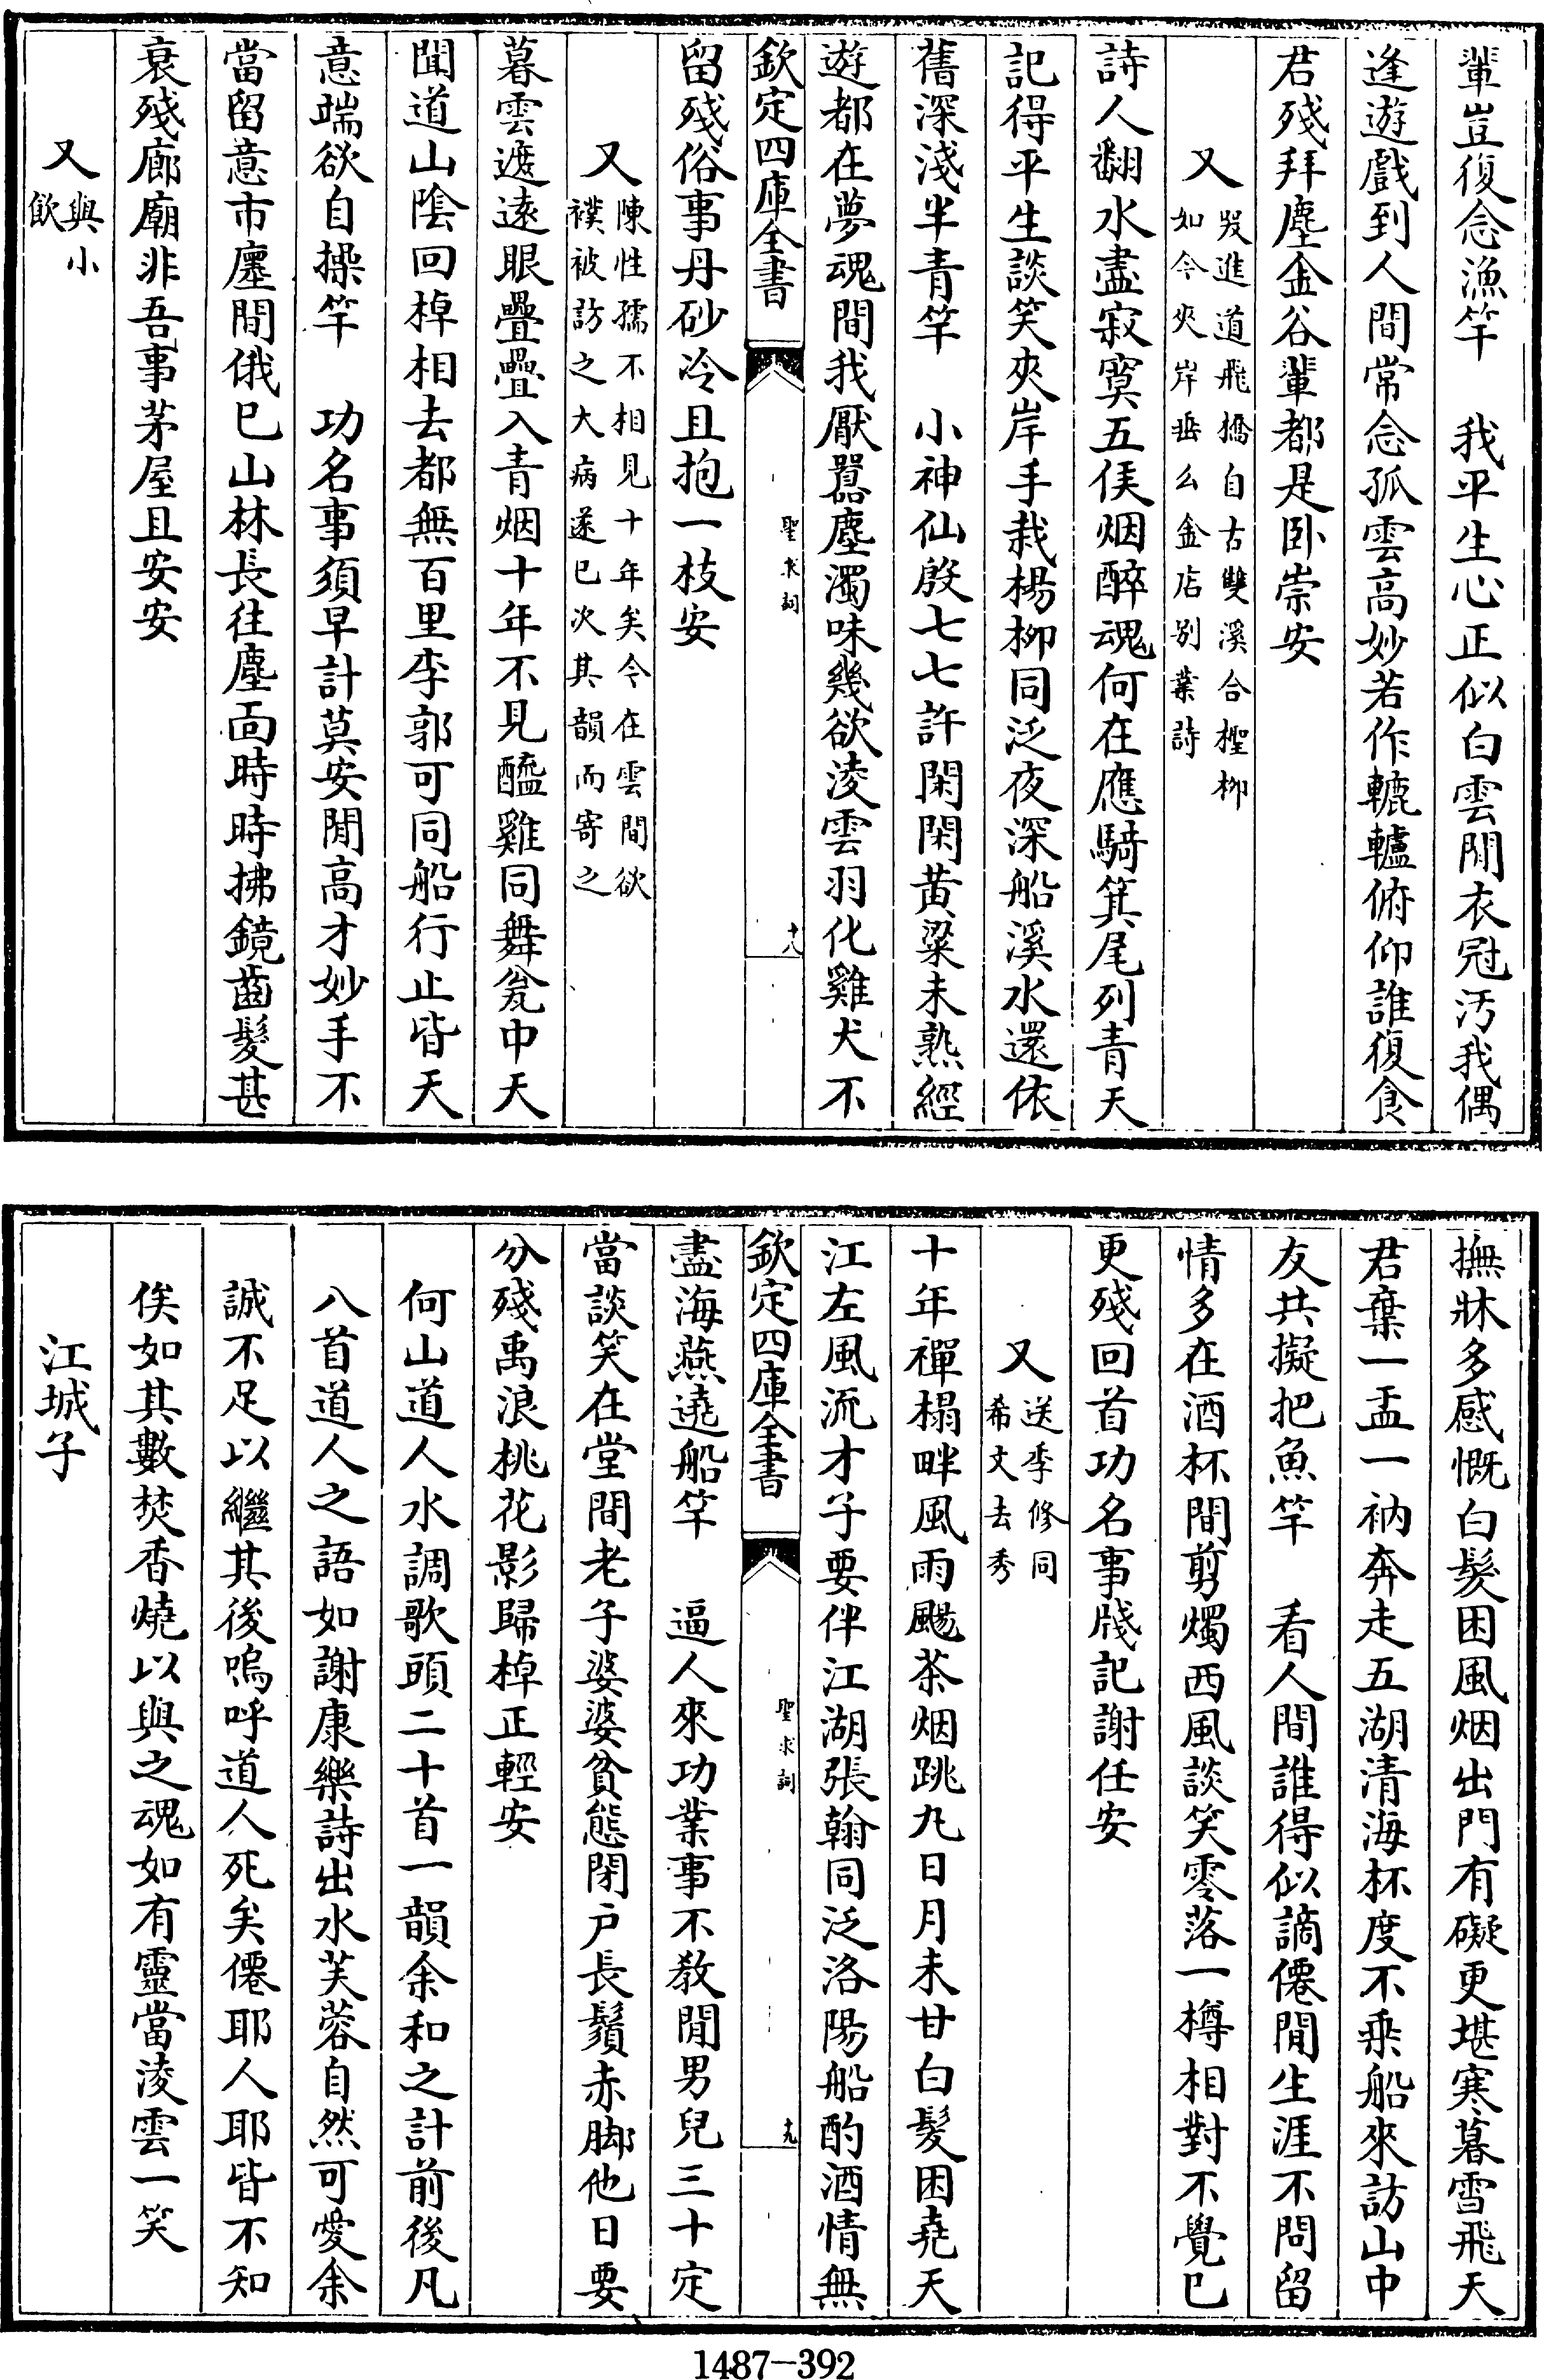 輩豈復念漁竿　我平生心正似白雲閒衣冠汚我偶
逢遊戲到人間常念孤雲高妙若作轆轤俯仰誰復食
君殘拜塵金谷輩都是卧崇安
又
哭進道飛橋自古雙溪合檉柳
如今夾岸垂么金店別業詩
詩人翻水盡寂寞五侯烟醉魂何在應騎箕尾列青天
記得平生談笑夾岸手栽楊柳同泛夜深船溪水還依
舊深淺半青竿　小神仙殷七七許閑閑黄粱未熟經
遊都在夢魂間我厭囂塵濁味幾欲淩雲羽化雞犬不
欽定四庫全書
聖求詞
十八
留殘俗事丹砂冷且抱一枝安
又
陳性孺不相見十年矣今在雲間欲
襆被訪之大病遂已次其韻而寄之
暮雲遮遠眼疊疊入青烟十年不見醯雞同舞瓮中天
聞道山陰回棹相去都無百里李郭可同船行止皆天
意端欲自操竿　功名事須早計莫安閒高才妙手不
當留意市廛間俄已山林長往塵面時時拂鏡齒髮甚
衰殘廊廟非吾事茅屋且安安
又
與小
飲
撫牀多感慨白髮困風烟出門有礙更堪寒暮雪飛天
君棄一盂一衲奔走五湖清海杯度不乗船來訪山中
友共擬把魚竿　看人間誰得似謫僊閒生涯不問留
情多在酒杯間剪燭西風談笑零落一樽相對不覺已
更殘回首功名事牋記謝任安
又
送季修同
希文去秀
十年禪榻畔風雨颺茶烟跳丸日月未甘白髮困堯天
江左風流才子要伴江湖張翰同泛洛陽船酌酒情無
欽定四庫全書
聖求詞
十九
盡海燕遶船竿　逼人來功業事不教閒男兒三十定
當談笑在堂間老子婆婆貧態閉户長鬚赤脚他日要
分殘禹浪桃花影歸棹正輕安
何山道人水調歌頭二十首一韻余和之計前後凡
八首道人之語如謝康樂詩出水芙蓉自然可愛余
誠不足以繼其後嗚呼道人死矣僊耶人耶皆不知
俟如其數焚香燒以與之魂如有靈當淩雲一笑
江城子
1487—392